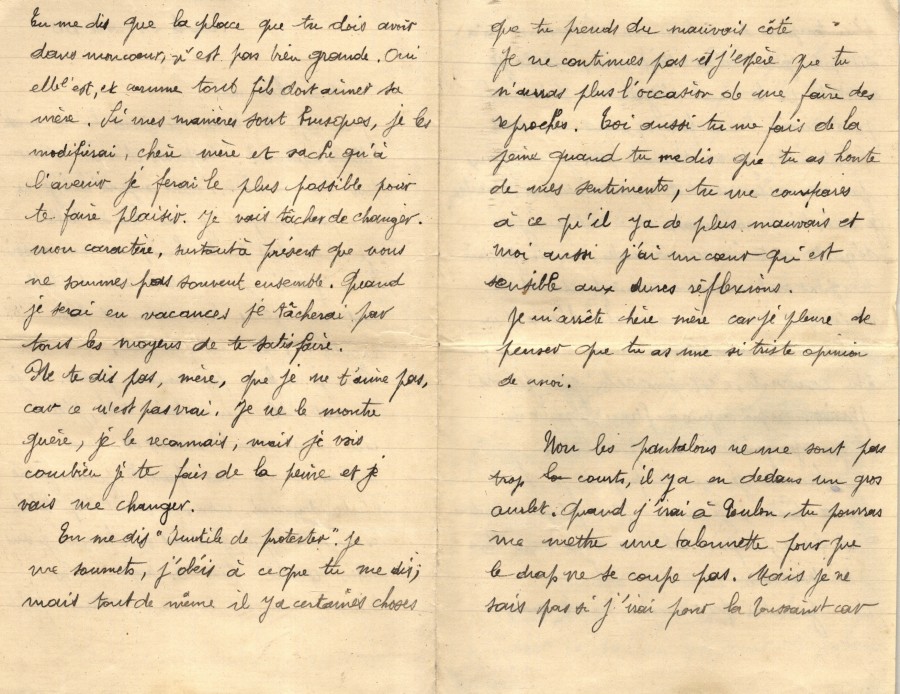 Tu me dis que la place que tu dois avoir
dans mon cœur, n'est pas bien grande. Oui
elle l'est, et comme tout fils doit aimer sa
mère. Si mes manières sont brusques, je les
modifierai, chère mère et sache qu'à
l'avenir je ferai le plus possible pour
te faire plaisir. Je vais tâcher de changer
mon caractère, surtout à présent que nous
ne sommes pas souvent ensemble. Quand
je serai en vacances je tâcherai par
tous les moyens de te satisfaire.
Ne te dis pas, mère, que je ne t'aime pas,
car ce n'est pas vrai. Je ne le montre
guère, je le reconnais, mais je vois
combien je te fais de la peine et je
vais me changer.
Tu me dis "Inutile de protester". Je
me soumets, j'obéis à ce que tu me dis;
mais tout de même il y a certaines choses
que tu prends du mauvais côté
Je ne continues pas et j'espère que tu
n'auras plus l'occasion de me faire des
reproches. Toi aussi tu me fais de la
peine quand tu me dis que tu as honte
de mes sentiments, tu me compares
à ce qu'il y a de plus mauvais et
moi aussi j'ai un cœur qui est
sensible aux dures réflexions.
Je m'arrête chère mère car je pleure de
penser que tu as une si triste opinion
de moi.
Non les pantalons ne me sont pas
trop courts, il y a en dedans un gros
ourlet. Quand j'irai à Toulon, tu pourras
me mettre une talonnette pour que
le drap ne se coupe pas. Mais je ne
sais pas si j'irai pour la Toussaint car